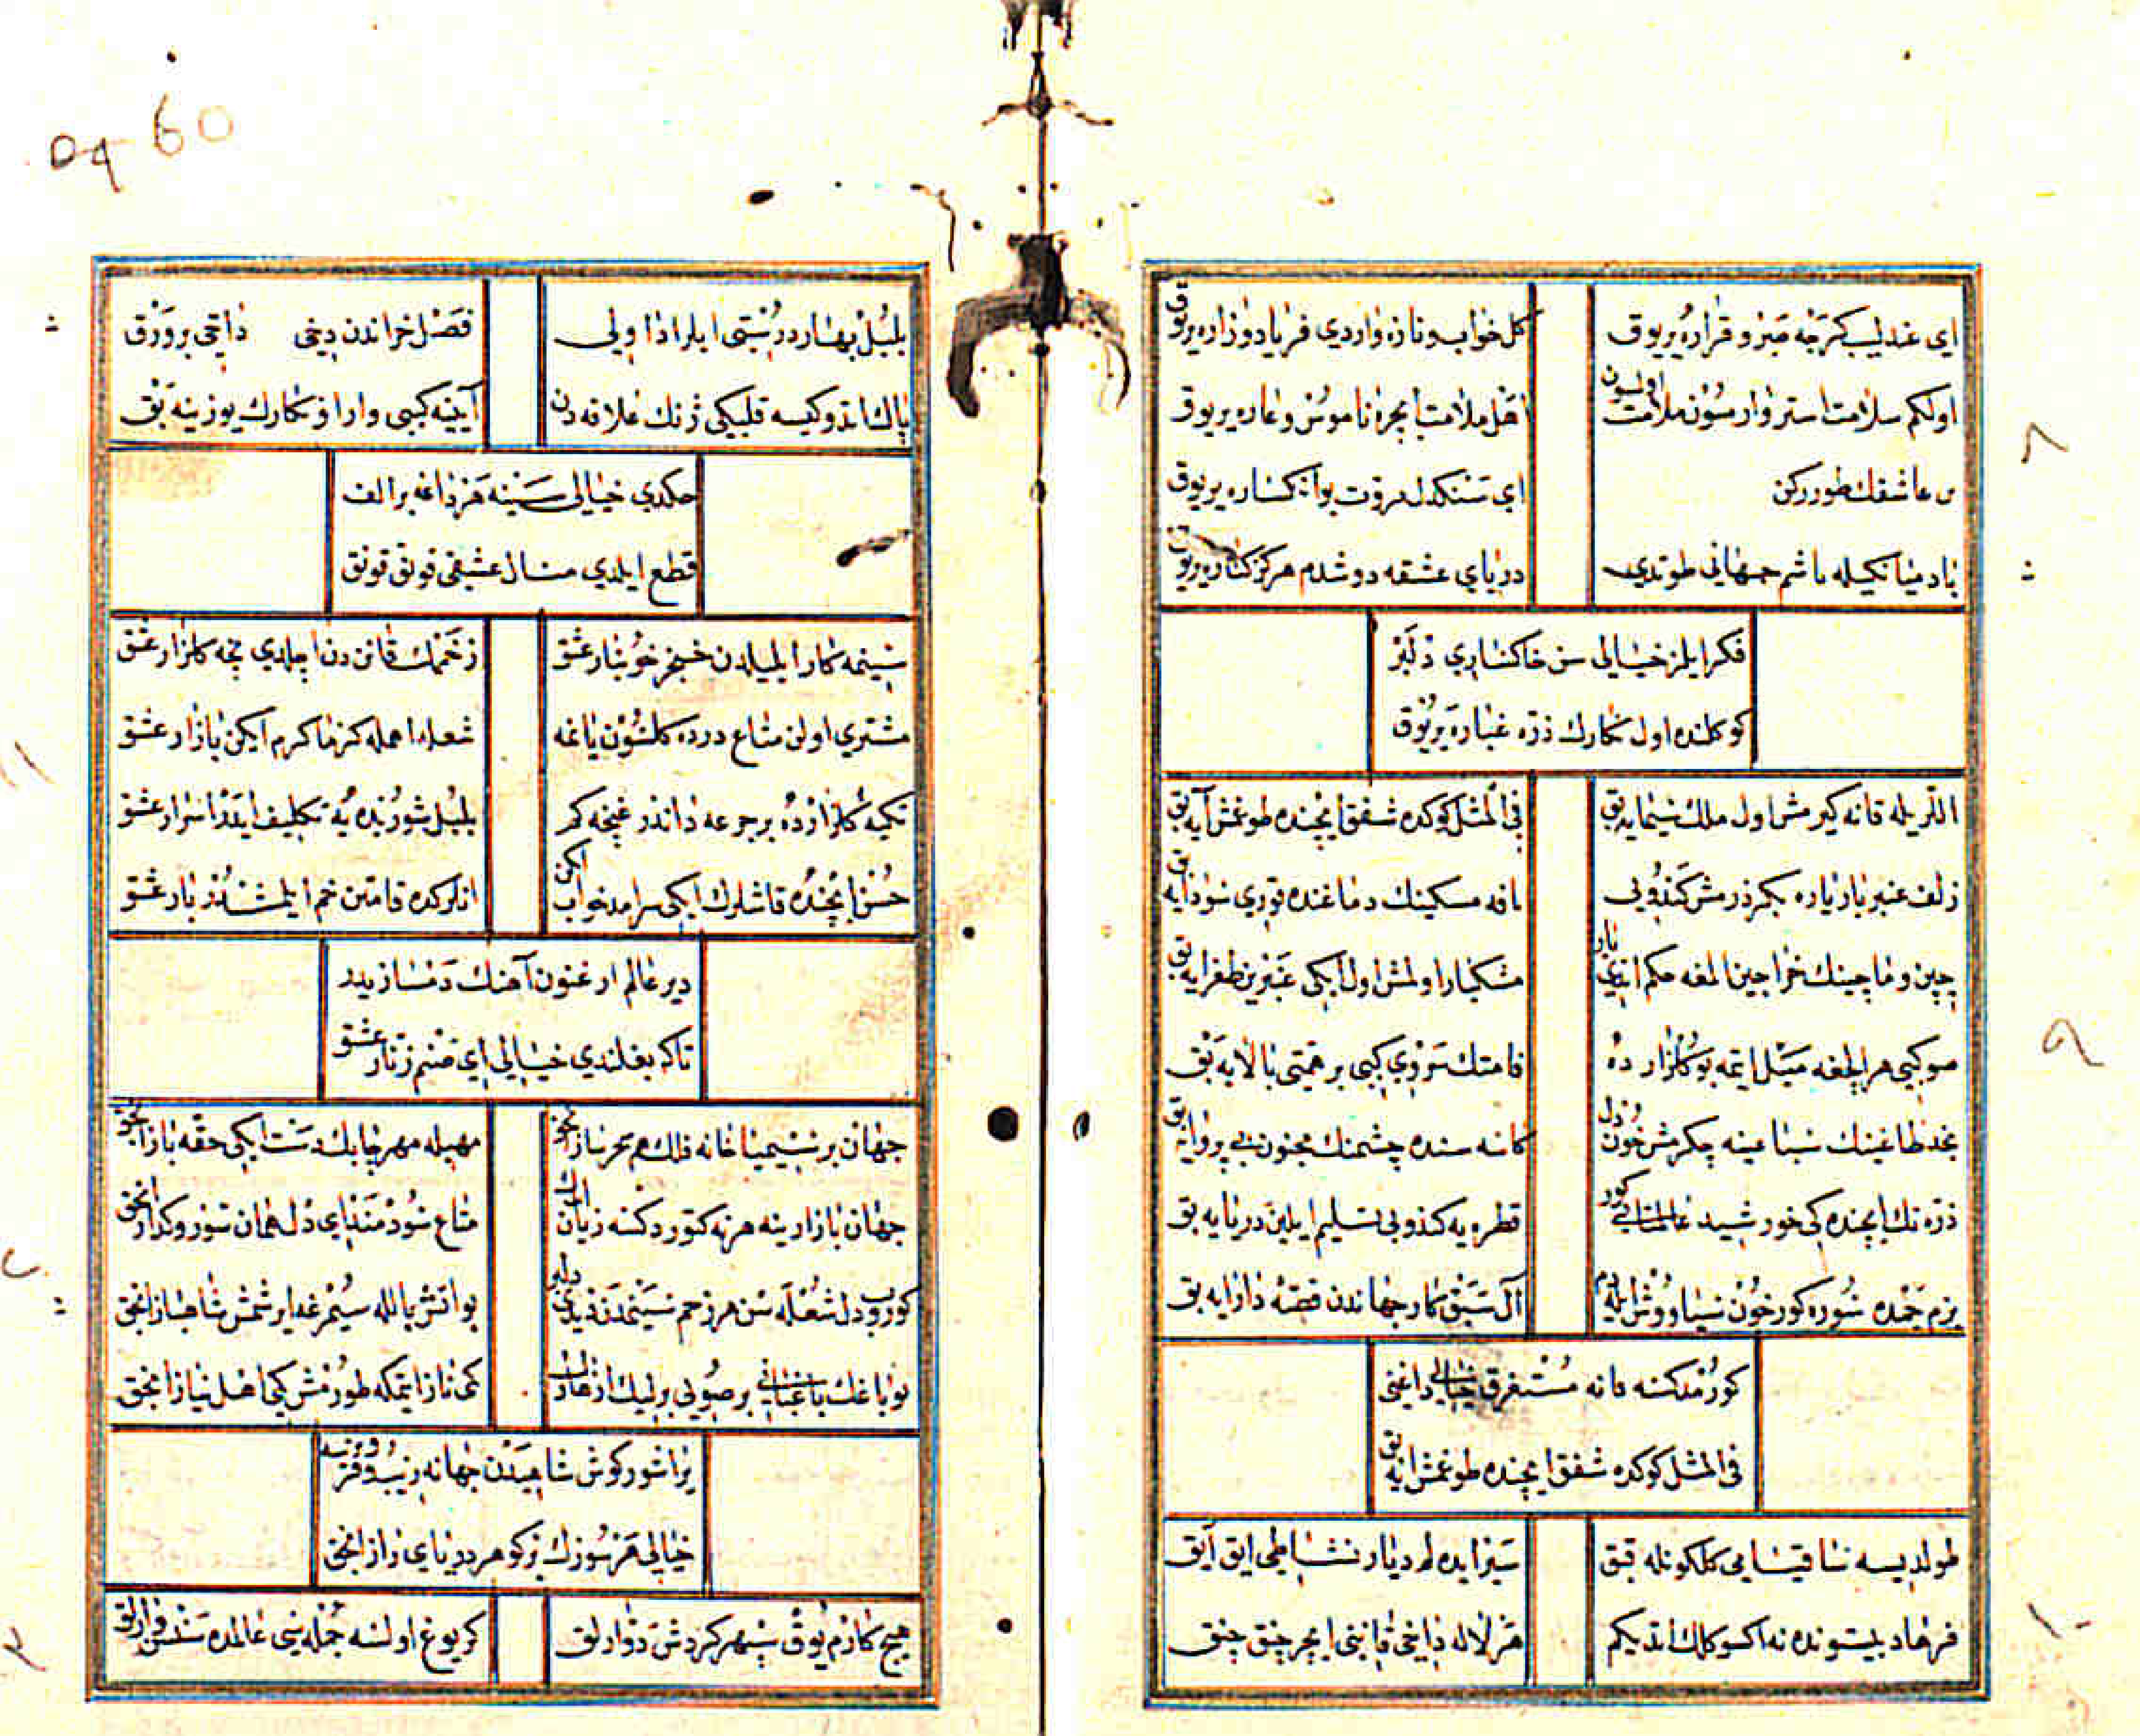 ای عندلیب کرچه صبر و قراره یر یوق
کل خواب و نازه واردی فریاد و زاره یر یوق
اولکم سلامت استر وارسون ملامت اولسون
اهل ملامت ایچره ناموس و عاره یر یوق
عاشقك طوررکن
ای سنکدل مروت بو
باد میانکیله یاشم جهانی طوتدی
دریای عشقه دوشدم هرکز کناره یر یوق
فکر ایلمز خیالی سن خاکساری دلبر
کوکلنده اول نکارك ذره غباره یر یوق
اللریله قانه کیرمش اول ملك سیمایه بق
فی المثل کوکده شفق ایچنده طوغمش آیه بق
زلف عنبر بار یاره بکزدرمش کندویی
نافه مسکینك دماغنده قوری سودایه بق
چین و ماچینك خراجین المغه حکم ایتدی یار
مشکبار اولمش اول ایکی عنبرین طغرایه بق
صو کیبی هر الچغه میل ایتمه بو کلزارده
قامتك سروی کیبی بر همتی بالایه بق
چکرمش خون دل
کاسه سنده چشمنك مجنون بی پروایه بق
ذره نك ایچنده کی خورشید عالمتابی کور
قطره یه کندویی تسلیم ایلین دریایه بق
بزم جمده شوره کور خون سیاووش ایله دم
آل سبق نکار جهاندن قصه دارایه بق
کورنمدکسه قانه مستغرق خیالی داغنی
فی المثل کوکده شفق ایچنده طوغمش ایه بق
طولدیسه ساقیا می کلکونله قبق
سیر ایده لم دیار نشاطی ایق آیق
فرهاد بیستونده نه اکسوکلك اتدیکم
هر لاله داخی قانینی ایچر چنق چنق
60
بلبل بهار درسنی ایلر ادا ولی
فصل خزاندن دخی داقی بر ورق
پاك اتدوکیسه قلبکی ژنك علاقه دن
آیینه کیبی وار او نکارك یوزینه بق
چکدی خیالی سینه مز داغه بر الف
قطع ایلدی منال عشقی قونق قونق
سینمه کار ایلمیلدن خنجر خونبار عشق
زخمك قانن دن اچلدی نیچه کلزار عشق
مشتری اولن متاع درده کلسون یاغه
شعله اهمله کزماکرم ایکن بازار عشق
تکیه کلزارده بر جرعه داندر غنچه کم
بلبل شوریده یه تکلیف ایدر اسرار عشق
حسن ایچنده قاشلرك ایکی سرامد خواب اکن
انلرکده قامتین خم ایلمشدر بار عشق
دیر عالم ارغنون آهنك دمسازیدر
تاکه بغلندی خیالی ای صنم زنار عشق
جهان بر سیمیا خانه فلك هم سحرباز انجق
مهیله مهر چابك دست ایکی حقه باز انجق
جهان بازارینه هر نه کتوردکسه زیان
متاع سودمند ای دل همان سوز و کداز انجق
کوروب دل شعله سن هر زخم سینمدن دیدی دلبر
بو اتش بالله سیمرغدایرشمش شاهباز انجق
نوباغك باغبانی بر صویی برلیك ازهارك
کمی ناز ایتمکه طورمش کمی اهل نیاز انجق
یراشور کوش شاهیدن جهانه زیب و فر ویرسه
خیالی هر سوزك بر کوهر دریای راز انجق
هیچ کارم یوق سپهر کردش دوارلق
کر یوغ اولسه جمله سی عالمده سندن وارلق